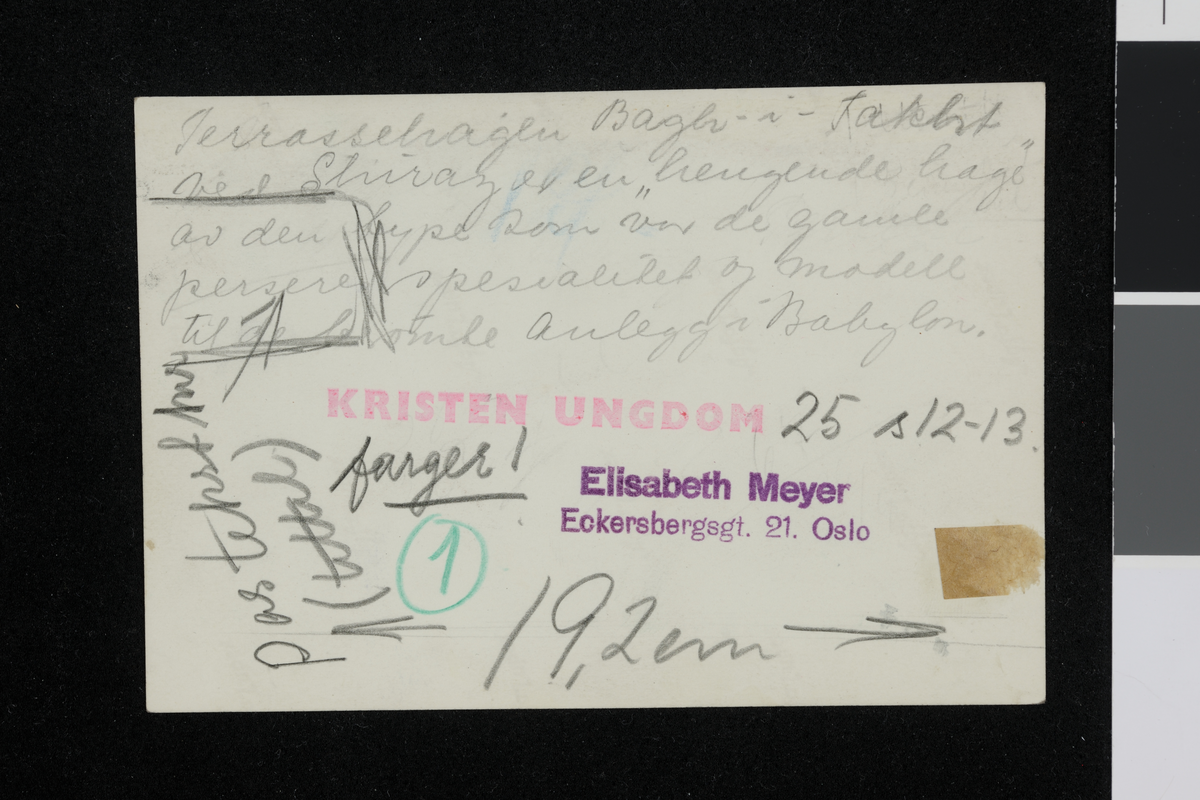 Terrassehagen Bagh-i-Takht
ved Shiraz er en „hengende hage"
av den type som var de gamle
perseres spesialitet og modell
til de berømte anlegg i Babylon.
KRISTEN UNGDOM 25 s 12-13.
farger!
Elisabeth Meyer
Eckersbergsgt. 21. Oslo
1
19,2 cm
pas tekst